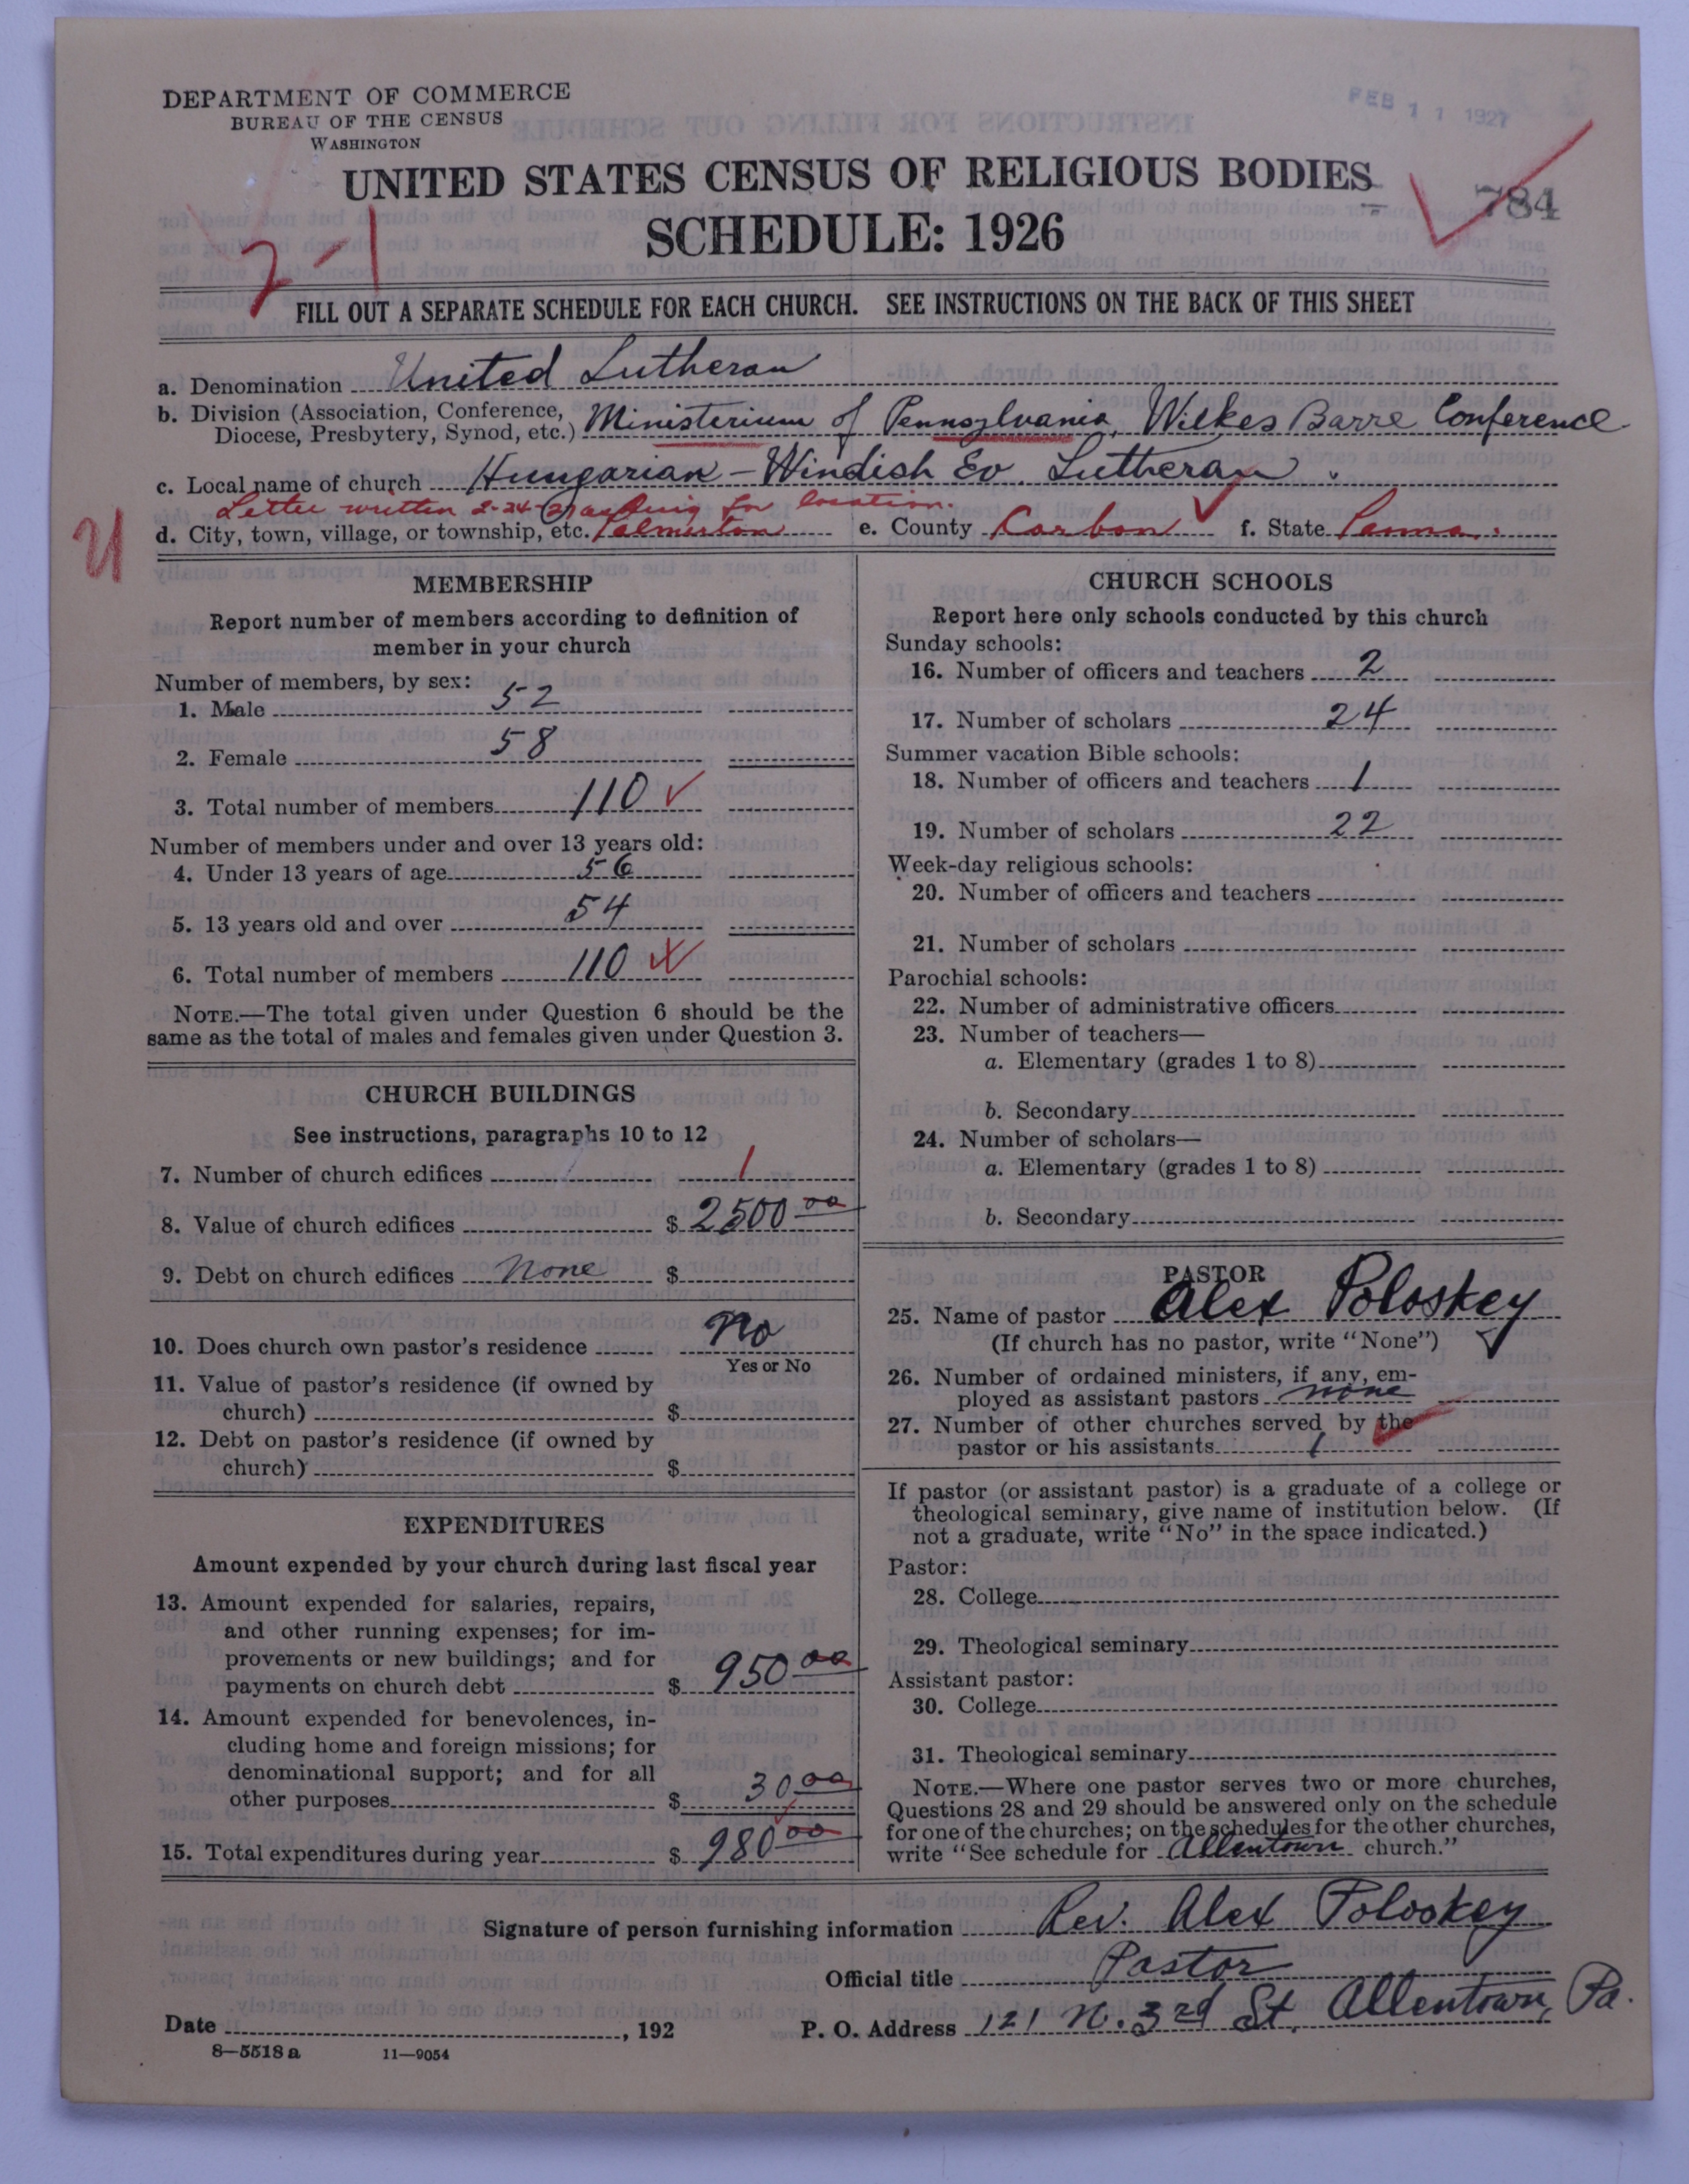 DEPARTMENT OF COMMERCE
BUREAU OF THE CENSUS
WASHINGTON
FEB 11 1927
UNITED STATES CENSUS OF RELIGIOUS BODIES
784
SCHEDULE: 1926
2-1
FILL OUT A SEPARATE SCHEDULE FOR EACH CHURCH. SEE INSTRUCTIONS ON THE BACK OF THIS SHEET
a. Denomination United Lutheran
b. Division (Association, Conference, Diocese, Presbytery, Synod, etc.) Ministerium of Pennsylvania, Wilkes Barre Conference
c. Local name of church Hungarian - Windish Ev. Lutheran
Letter written 2-24-27 asking for location.
d. City, town, village, or township, etc. Palmerton e. County Carbon f. State Penna.
MEMBERSHIP
Report number of members according to definition of
member in your church
Number of members, by sex:
1. Male 52
2. Female 58
3. Total number of members 110
Number of members under and over 13 years old:
4. Under 13 years of age 56
5. 13 years old and over 54
6. Total number of members 110
NOTE.—The total given under Question 6 should be the
same as the total of males and females given under Question 3.
CHURCH BUILDINGS
See instructions, paragraphs 10 to 12
7. Number of church edifices 1
8. Value of church edifices $ 2500 00
9. Debt on church edifices None $
10. Does church own pastor's residence No
Yes or No
11. Value of pastor's residence (if owned by
church) $
12. Debt on pastor's residence (if owned by
church) $
EXPENDITURES
Amount expended by your church during last fiscal year
13. Amount expended for salaries, repairs,
and other running expenses; for im-
provements or new buildings; and for
payments on church debt $ 950 00
14. Amount expended for benevolences, in-
cluding home and foreign missions; for
denominational support; and for all
other purposes $ 30 00
15. Total expenditures during year $ 980 00
CHURCH SCHOOLS
Report here only schools conducted by this church
Sunday schools:
16. Number of officers and teachers 2
17. Number of scholars 24
Summer vacation Bible schools:
18. Number of officers and teachers 1
19. Number of scholars 22
Week-day religious schools:
20. Number of officers and teachers
21. Number of scholars
Parochial schools:
22. Number of administrative officers
23. Number of teachers—
a. Elementary (grades 1 to 8)
b. Secondary
24. Number of scholars—
a. Elementary (grades 1 to 8)
b. Secondary
PASTOR
25. Name of pastor Alex Poloskey
(If church has no pastor, write "None")
26. Number of ordained ministers, if any, em-
ployed as assistant pastors none
27. Number of other churches served by the
pastor or his assistants 1
If pastor (or assistant pastor) is a graduate of a college or
theological seminary, give name of institution below. (If
not a graduate, write "No" in the space indicated.)
Pastor:
28. College
29. Theological seminary
Assistant pastor:
30. College
31. Theological seminary
NOTE.—Where one pastor serves two or more churches,
Questions 28 and 29 should be answered only on the schedule
for one of the churches; on the schedules for the other churches,
write "See schedule for Allentown church."
Signature of person furnishing information Rev. Alex Poloskey
Official title Pastor
Date , 192 P. O. Address 121 N. 3rd St. Allentown, Pa.
8—5518 a 11—9054